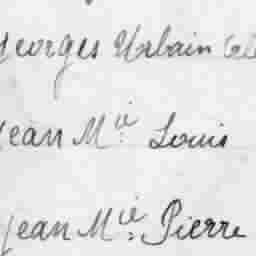 Georges Urbain
Jean M.ie Louis
Jean M.ie Pierre